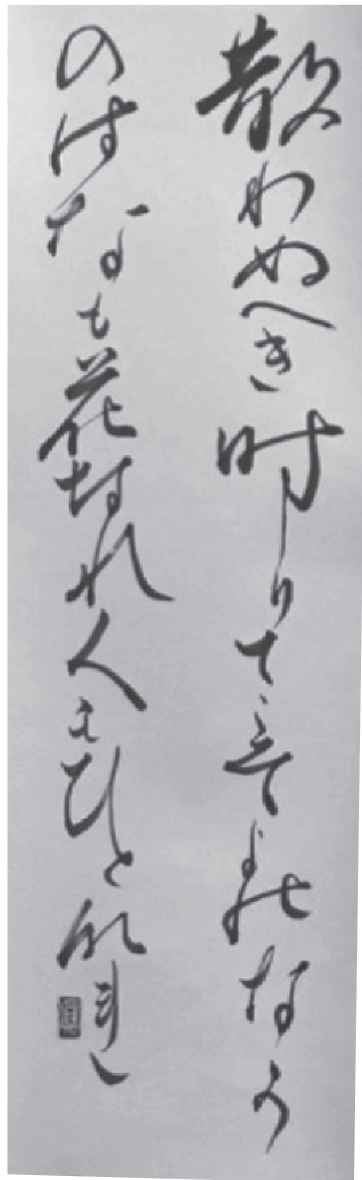 散りぬへき時しりてこそ世のなか
のはなも花なれ人もひとなれ